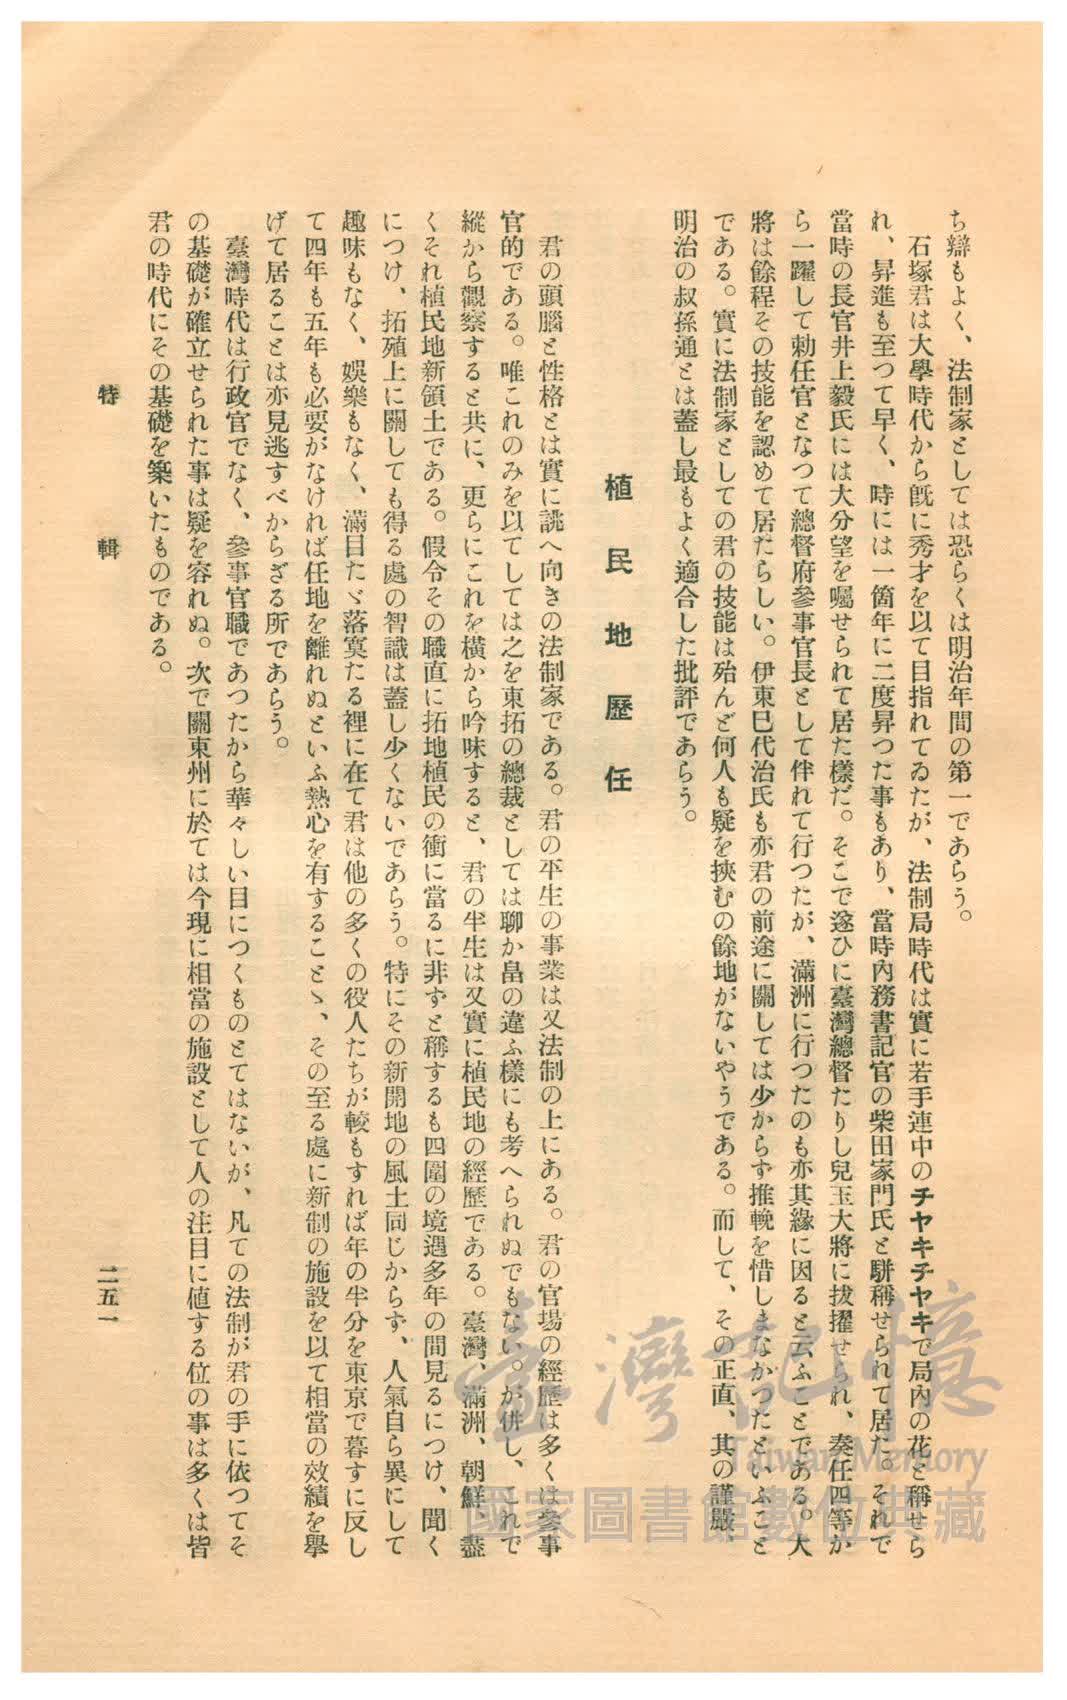 ち辯もよく、法制家としては恐らくは明治年間の第一であらう。
石塚君は大學時代から旣に秀才を以て目指れてゐたが、法制局時代は實に若手連中のチヤキチヤキで局內の花と稱せら
れ、昇進も至つて早く、時には一箇年に二度昇つた事もあり、當時內務書記官の柴田家門氏と駢稱せられて居た。それで
當時の長官井上毅氏には大分望を囑せられて居た樣だ。そこで遂ひに臺灣總督たりし兒玉大將に拔擢せられ、奏任四等か
ら一躍して勅任官となつて總督府參事官長として伴れて行つたが、滿洲に行つたのも亦其緣に因ると云ふことである。大
將は餘程その技能を認めて居たらしい。伊東巳代治氏も亦君の前途に關しては少からず推輓を惜しまなかつたといふこと
である。實に法制家としての君の技能は殆んど何人も疑を挾むの餘地がないやうである。而して、その正直、其の謹嚴、
明治の叔孫通とは蓋し最もよく適合した批評であらう。
植民地歷任
君の頭腦と性格とは實に誂へ向きの法制家である。君の平生の事業は又法制の上にある。君の官場の經歷は多くは參事
官的である。唯これのみを以てしては之を東拓の總裁としては聊か畠の違ふ樣にも考へられぬでもない。が併し、これで
縱から觀察すると共に、更らにこれを橫から吟味すると、君の半生は又實に植民地の經歷である。臺灣、滿洲、朝鮮、盡
くそれ植民地新領土である。假令その職直に拓地植民の衝に當るに非ずと稱するも四圍の境遇多年の間見るにつけ、聞く
につけ、拓殖上に關しても得る處の智識は蓋し少くないであらう。特にその新開地の風土同じからず、人氣自ら異にして
趣味もなく、娛樂もなく、滿目たゞ落寞たる裡に在て君は他の多くの役人たちが較もすれば年の半分を東京で暮すに反し
て四年も五年も必要がなければ任地を離れぬといふ熱心を有することゝ、その至る處に新制の施設を以て相當の效績を擧
げて居ることは亦見逃すべからざる所であらう。
臺灣時代は行政官でなく、參事官職であつたから華々しい目につくものとてはないが、凡ての法制が君の手に依つてそ
の基礎が確立せられた事は疑を容れぬ。次で關東州に於ては今現に相當の施設として人の注目に値する位の事は多くは皆
君の時代にその基礎を築いたものである。
特輯
二五一
臺灣記憶
Taiwan Memory
國家圖書館數位典藏